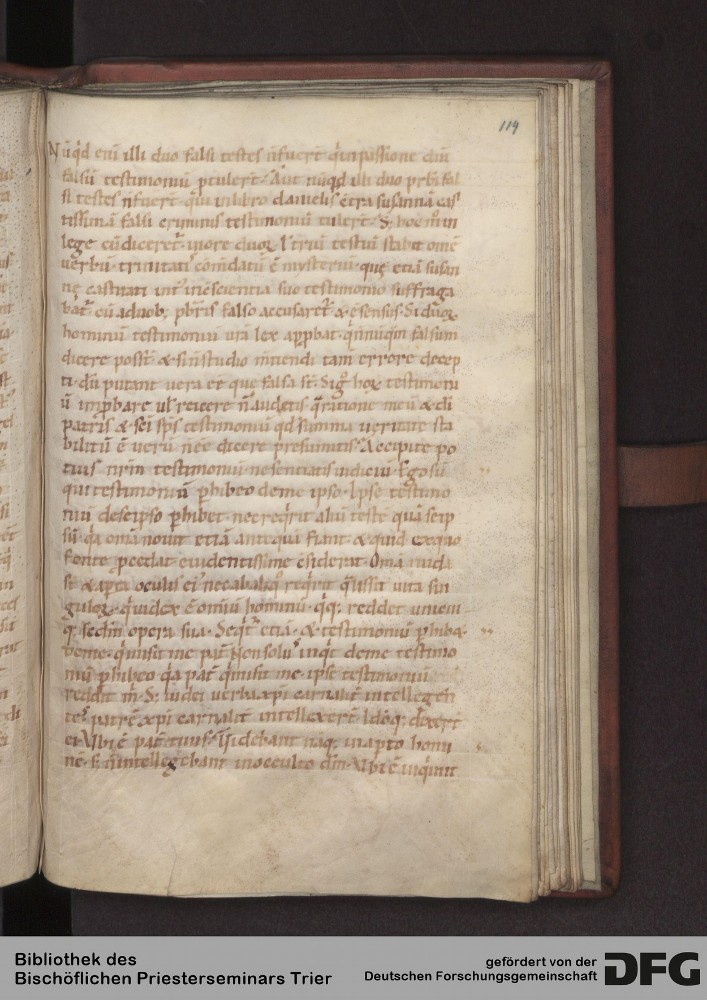 119
Nūq̇d enī illi duo falsi testes n̄ fuerт̄ q̇ in passione dn̄i
falsū testimoniū ptulert̄. Aut nūq̇d illi duo prb̄i fal
si testes n̄ fuert̄ q̇ in libro danielis c̄tra susannā cas
tissimā falsi criminis testimoniū tulert̄. S; hoc m̊ in
lege cū diceret̄ in ore duoꝝ ł triū testiū stabit om̄e
uerbū. trinitatis com̄datū ē mysteriū. quę etiā susan
nę castitati int̄
suo testimonio suffraga
bat̄ cū a duob; prb̄ris falso accusaret̄
Si duoꝝ
hominū testimoniū ura lex app̄bat. q̇ nūnq̇m falsum
dicere poss̄t & si n̄ studio m̄tiendi tam̄ errore decep
ti. dū putant uera ēē que falsa st̄. Sigͦ hoꝝ testimoni
ū imp̄bare uł reicere n̄ audetis q̄ ratione meū & dī
patris & sc̄i sp̄s testimoniū qd̄ summa ueritate sta
bilitū ē uerū n̄ ēē dicere presumitis. Accipite po
tius nr̄m testimoniū ne sentiatis iudiciū. Ego sū
qui testimoniū p̱hibeo de me ipso. Ipse testimo
niū de se ipso p̱hibet. nec req̇rit aliū testē quā se ip
sū. q̇a om̄a nouit etiā anteq̇uā fiant. & quid ex quo
fonte pcedat euidentissime c̄siderat. Om̄a nuda
st̄ & apta oculis ei᾽. nec ab aliq̊ req̇rit
uita sin
guloꝝ. q̇ iudex ē om̄iū hominū. q̇q; reddet unicui
q; sc̄dm opera sua. Seq̇t̄ etiā. & testimoniū p̱hib&
de me. q̇ misit me pat̄. Non solū inq̇t de me testimo
niū p̱hibeo q̇a pat̄ q̇ misit me. ipse testimoniū
reddit m̄. S; iudei uerba xp̄i carnalit̄ intellegen
tes patrē xp̄i carnalit̄ intellexert̄. Idoq; dixert̄
ei. Vbi ē pat̄ tuus. Uidebant naq; in apto homi
nē. s; n̄ intellegebant in occulto dm̄. Vbi ē inq̇iunt
Bibliothek des
Bischöflichen Priesterseminars Trier
gefördert von der
Deutschen Forschungsgemeinschaft
DFG